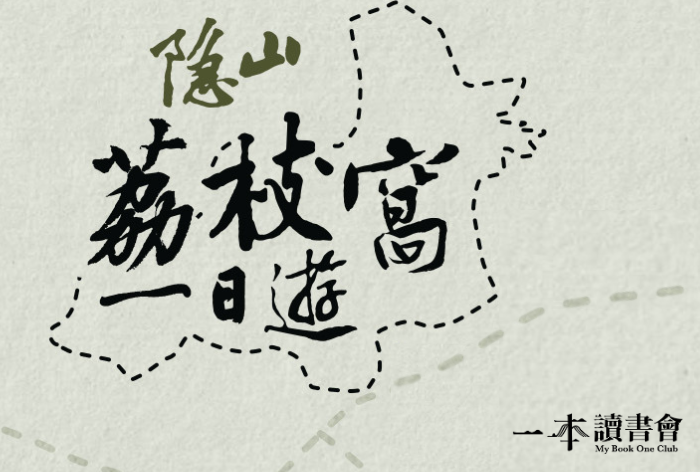 隐山
荔枝窩
一日遊
一本讀書會
My Book One Club